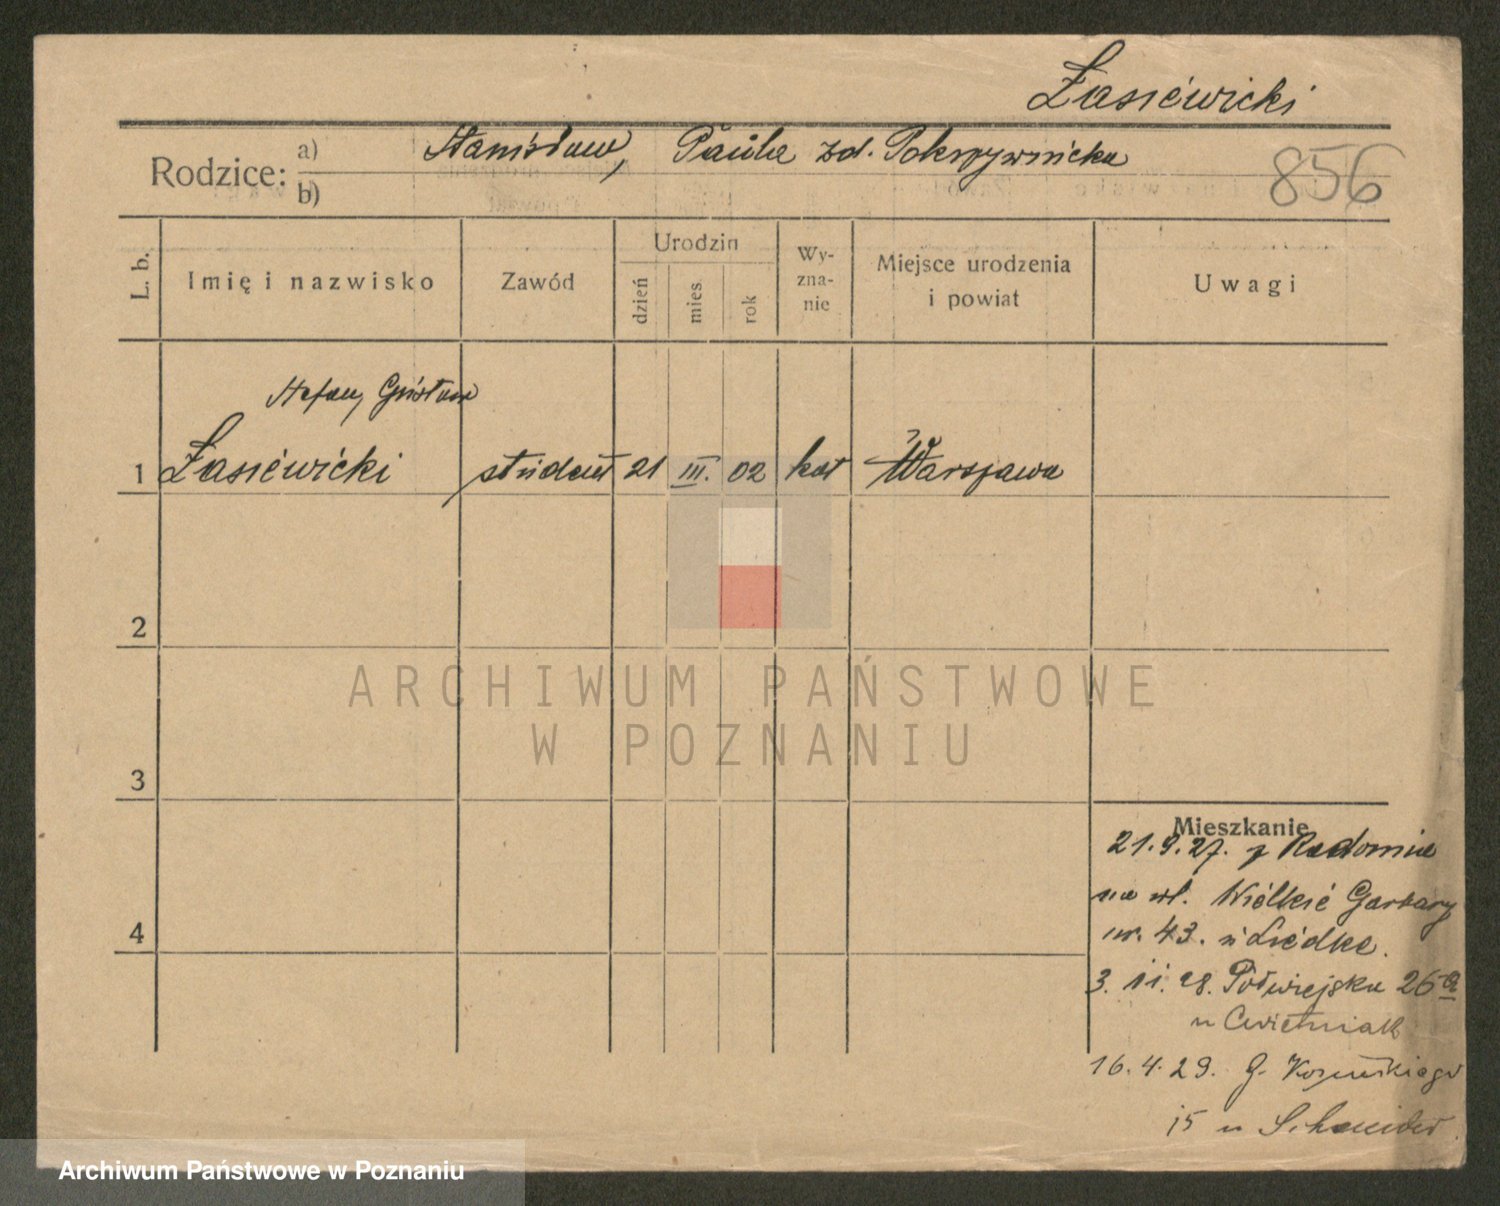 Łasiewicki
Rodzice: a) Stanisław, Paula zd. Pokrzywnicka
b)
856
L. b.
Imię i nazwisko
Zawód
Urodzin
dzień
mies.
rok
Wy-
zna-
nie
Miejsce urodzenia
i powiat
Uwagi
Stefan, Gustaw
1 Łasiewicki student 21 III. 02 kat Warszawa
2
3
4
ARCHIWUM PAŃSTWOWE
W POZNANIU
Mieszkanie
21.9.27. z Radomia
na ul. Wielkie Garbary
nr. 43. u Liedke.
3. 11. 28. Półwiejska 26a
u Cwietniak
16.4.29. G.
15 u Schneider
Archiwum Państwowe w Poznaniu